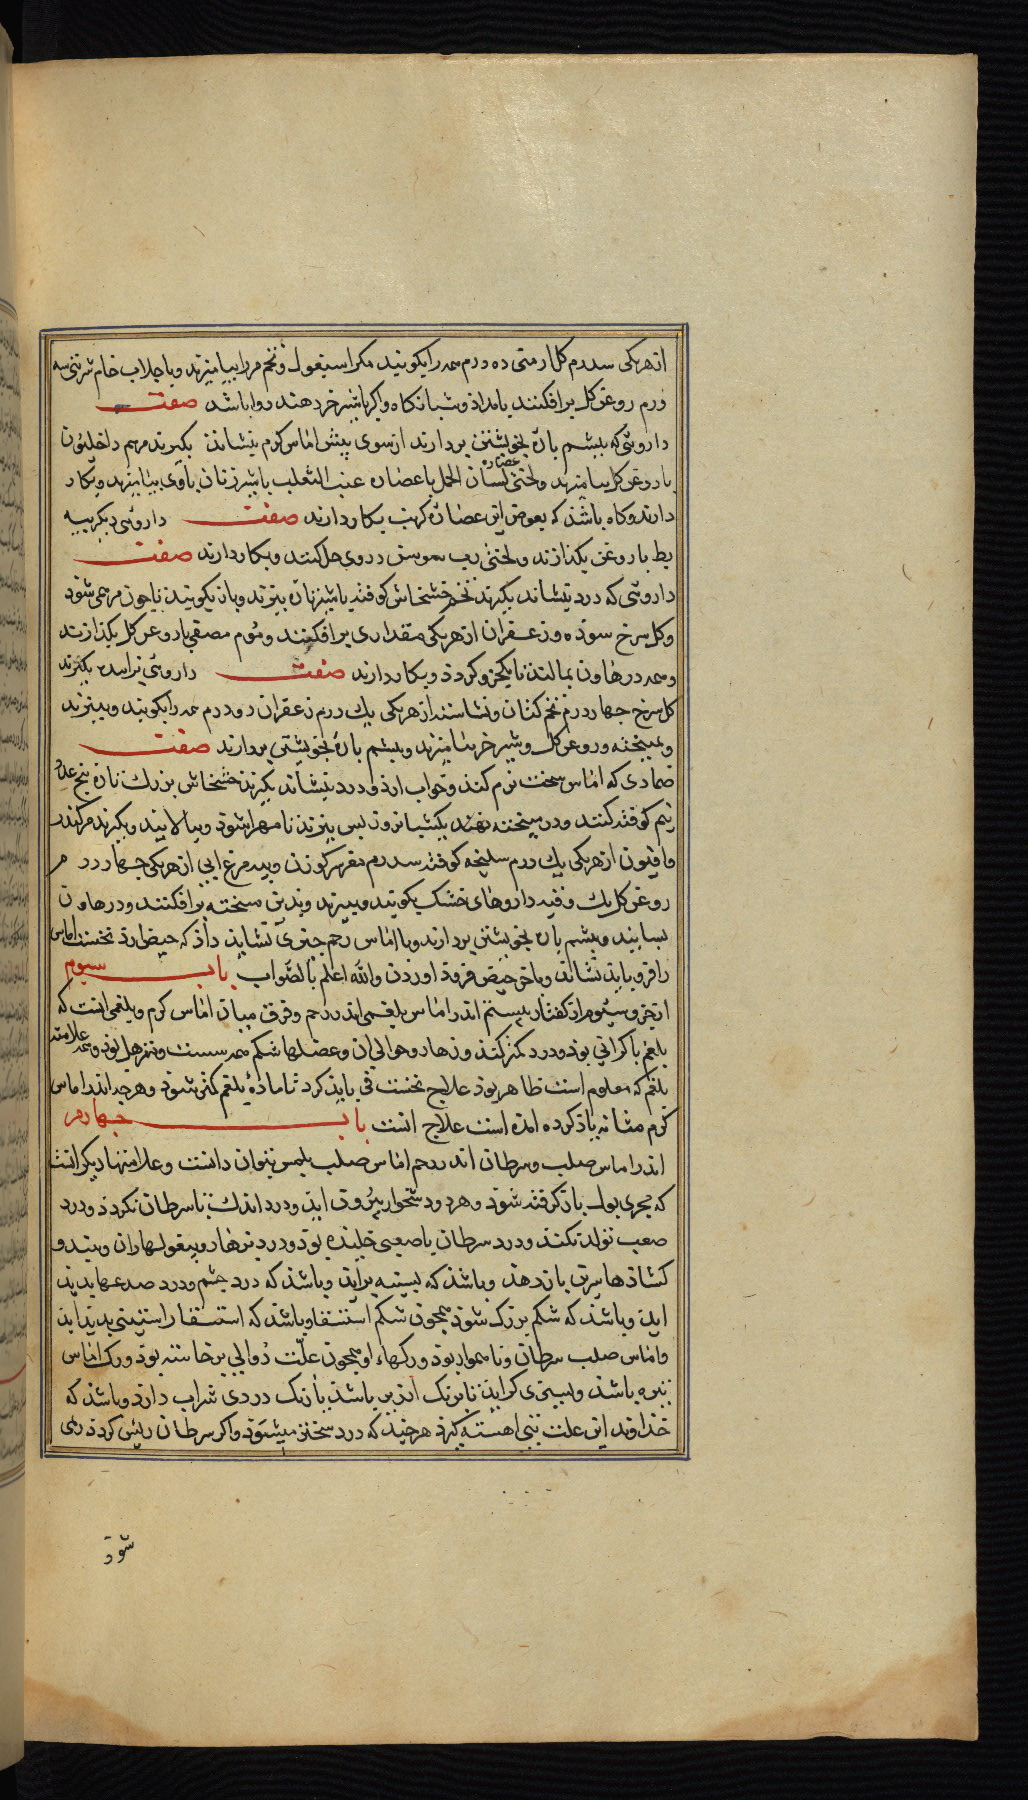 ازهریکی سه درم کل ارمنی ده درم همه رابکوبند مکر اسبغول و تخم مرو رابیامیزند وباجلاب خام شربتی سه
درم روغن کل برافکنند بامداذ وشبانکاه واکر باشیر خر دهند روا باشد صفت
داروئی که بپشم باره بخویشتن بردارند ازسوی پیش اماس کرم بنشاند بکیرند مرهم داخلیون
باروغن کل بیامیزند ولختی عصاره لسان الحمل باعصاره عنب الثعلب باشیر زنان باوی بیامیزند وبکار
دارند وکاه باشذ که بعوض این عصاره کرنب بکار دارند صفت داروئی دیکر پیه
بط باروغن بکذازند ولختی رب سوسن دروی حل کنند وبکار دارند صفت
داروئی که درد بنشاند بکیرند تخم خشخاش کوفته باشیر زنان بپزند وبازبکوبند تاچون مرهمی شوذ
وکل سرخ سوذه وزعفران ازهریکی مقداری برافکنند وموم مصفی باروغن کل بکذازند
وهمه درهاون بمالند تایکجزو کردذ وبکار دارند صفت داروئی بکیرند
کل سرخ جهار درم تخم کتان ونشاسته ازهریکی یک درم زعفران دودرم همه رابکوبند وببیزند
وبمیبخته وروغن کل وشیر خر بیامیزند وبپشم باره بخویشتن بردارند صفت
ضمادی که اماس سخت نرم کند وخواب ارذ ودرد بنشاند بکیرند خشخاش بزرک تازه پنج عدد
نیم کوفته کنند ودر میبخته نهند یکشبانروز پس بپزند تا مهرا شوذ وبپالایند وبکیرند مرکندر
وافیون ازهریکی یک درم سلیخه کوفته سه درم مغز سر کوزن وپیه مرغ ابی ازهریکی جهار درم
روغن کل یک وقیه داروهای خشک بکوبند وببیزند وبذین میبخته برافکنند ودرهاون
بسایند وبپشم باره بخویشتن بردارند وبااماس رحم جیزی نشاید داذ که حیض ارد نخست اماس
رافرو باید نشاند وباخر حیض فروذ اوردن والله اعلم بالصواب باب سیوم
ازجزو سیوم از کفتار بیستم اندر اماس بلغمی اندر رحم وفرق میان اماس کرم وبلغمی انست که
بلغم باکرانی بوذ ودرد کمتر کند وزهار وحوالی ان وعضلها شکم همه سست ومترهل بوذ وهمه علامتها
بلغم که معلوم است ظاهر بوذ علاج نخست قی باید کرد تا ماده بلغم کمتر شوذ وهرچه اندر اماس
کرم مثانه یاذ کرده امده است علاج انست باب جهارم
اندر اماس صلب وسرطان اندر رحم اماس صلب بلمس بتوان دانست وعلامتها دیکر انست
که مجری بول باز کرفته شوذ وهردو دشخوار بیرون ایذ ودرد اندک تا سرطان نکردذ ودرد
صعب تولد نکند ودرد سرطان باصعبی خلیذه بوذ ودرد درزهار وبیغولهاء ران وپشت و
کشاذها سرین باز دهذ وباشذ که بسینه برایذ وباشذ که درد جشم ودرد صدغها پدید
ایذ وباشذ که شکم بزرک شوذ همجون شکم استسقا وباشذ که استسقا راستینی پدید ایذ
واماس صلب سرطان ناهموار بوذ ورکهاء او همجون علت دوالی برخاسته بوذ ورنک اماس
تیره باشذ وبسبزی کرایذ یا برنک ارزیز باشذ یا رنک دردی شراب دارذ وباشذ که
خذاوند این علت تبی اهسته کیرذ هرجند که درد سختتر میشوذ واکر سرطان ریش کردذ ریم
شوذ